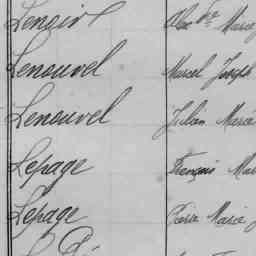 Lenoir Marie
Lenouvel Marcel Joseph
Lenouvel Julien Marie
Lepage François Mar
Lepage Pierre Marie